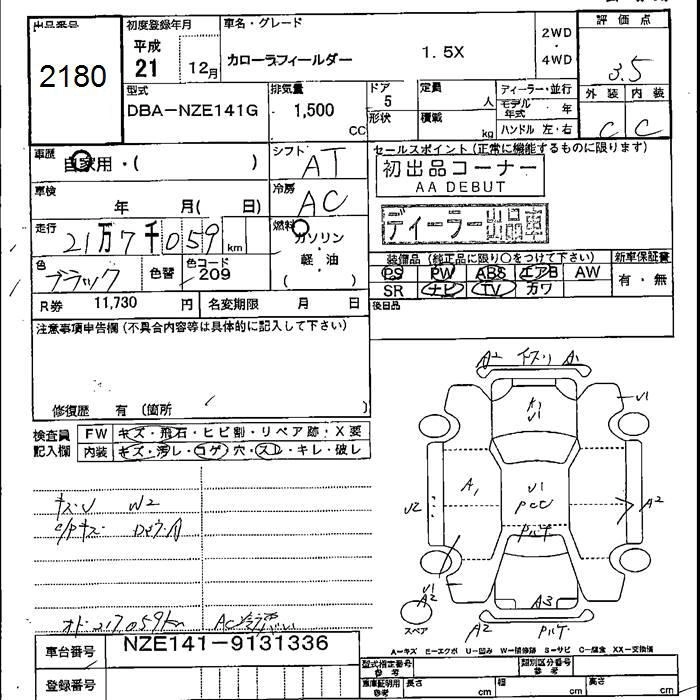 出品番号
2180
初度登録年月
平成
21 12月
車名・グレード
カローラフィールダー 1.5X
2WD
・
4WD
評価点
3.5
外装 内装
C C
型式
DBA-NZE141G
排気量
1,500
CC
ドア
5
形状
定員
人
積載
kg
ディーラー・並行
モデル年式 年
ハンドル 左・右
車歴
自家用・( )
シフト
AT
車検
年 月( 日)
冷房
AC
走行
21万7千059
km
燃料
ガソリン
・
軽・油
( )
色
ブラック
色替
色コード
209
R券 11,730 円
名変期限 月 日
セールスポイント(正常に機能するものに限ります)
初出品コーナー
AA DEBUT
ディーラー出品車
装備品(純正品に限り○をつけて下さい)
新車保証書
PS PW ABS エアB AW
有・無
SR ナビ TV カワ
後日品
注意事項申告欄(不具合内容等は具体的に記入して下さい)
修復歴 有 (箇所 )
検査員
記入欄
FW キズ・飛石・ヒビ割・リペア跡・X要
内装 キズ・汚レ・コゲ穴・スレ・キレ・破レ
キズU W2
オド217,059km
車台番号 NZE141-9131336
登録番号
A2 A1
A1
U1
U1
A1
U1
PCC
U2
A2
U1
A2
A3
スペア
A2
A-キズ E-エクボ U-凹み W-補修跡 S-サビ C-腐食 XX-交換済
型式指定番号
参考
類別区分番号
参考
車庫証明用
参考
長さ cm
幅 cm
高さ cm